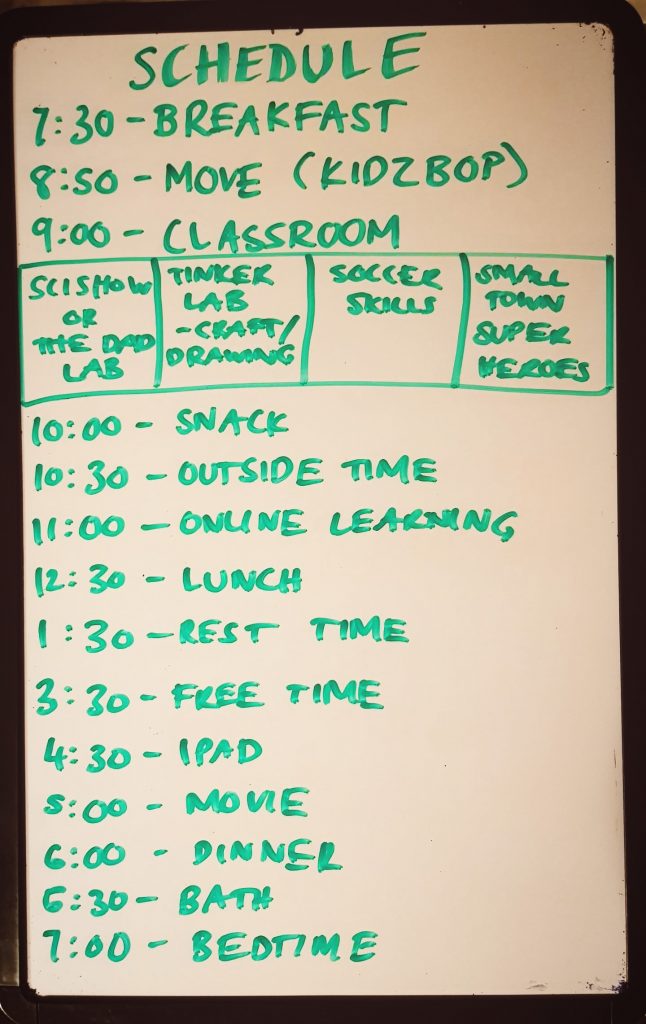 SCHEDULE
7:30 - BREAKFAST
8:50 - MOVE (KIDZBOP)
9:00 - CLASSROOM
SCISHOW
OR
THE DAD
LAB
TINKER
LAB
- CRAFT/
DRAWING
SOCCER
SKILLS
SMALL
TOWN
SUPER
HEROES
10:00 - SNACK
10:30 - OUTSIDE TIME
11:00 - ONLINE LEARNING
12:30 - LUNCH
1:30 - REST TIME
3:30 - FREE TIME
4:30 - IPAD
5:00 - MOVIE
6:00 - DINNER
6:30 - BATH
7:00 - BEDTIME